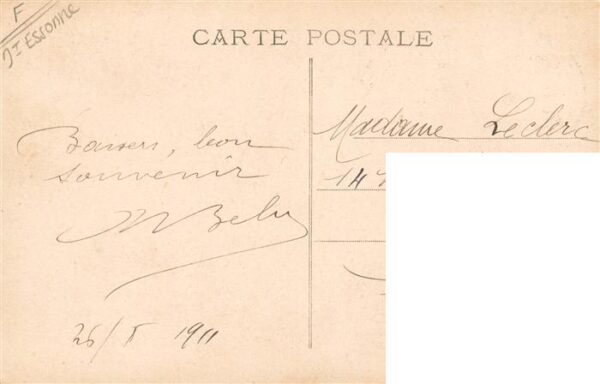 F
Essonne
CARTE POSTALE
Baisers, bon
souvenir
Madame Leclerc
14
26/5 1911